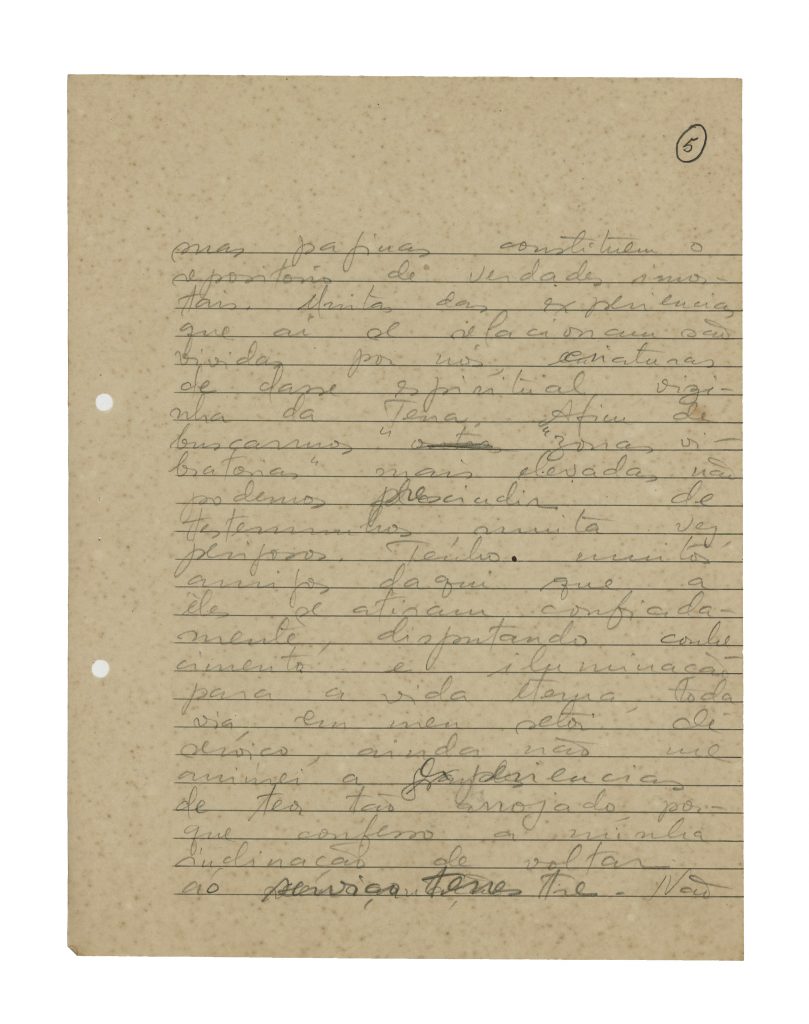 5
mas paginas constituem o
repositorio de verdades imor-
tais. Muitas das experiencias
que aí se relacionam são
vividas por nós, criaturas
de classe espiritual vizi-
nha da Terra. Afim de
buscarmos "zonas vi-
bratorias" mais elevadas não
podemos prescindir de
testemunhos muita vez
perigosos. Tenho muitos
amigos daqui que a
êles se atiram confiada-
mente, disputando conhe
cimento e iluminação
para a vida eterna, toda
via, em meu setor de
serviço, ainda não me
animei a experiencias
de teor tão arrojado, por-
que confesso a minha
inclinação de voltar
ao serviço terrestre. Não